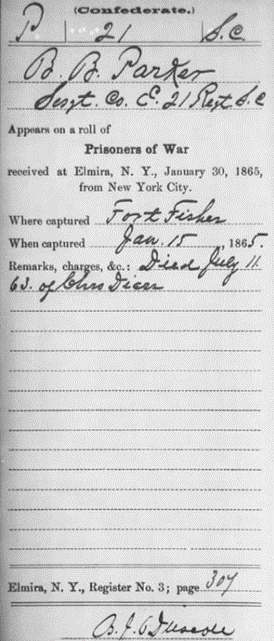 (Confederate.)
P 21 S.C
B. B. Parker
Sergt. Co. E. 21 Regt S.C
Appears on a roll of
Prisoners of War
received at Elmira, N. Y., January 30, 1865,
from New York City.
Where captured Fort Fisher
When captured Jan. 15, 1865.
Remarks, charges, &c.: Died July 11
65. of Chro Diarr
Elmira, N. Y., Register No. 3; page 307
B. J.